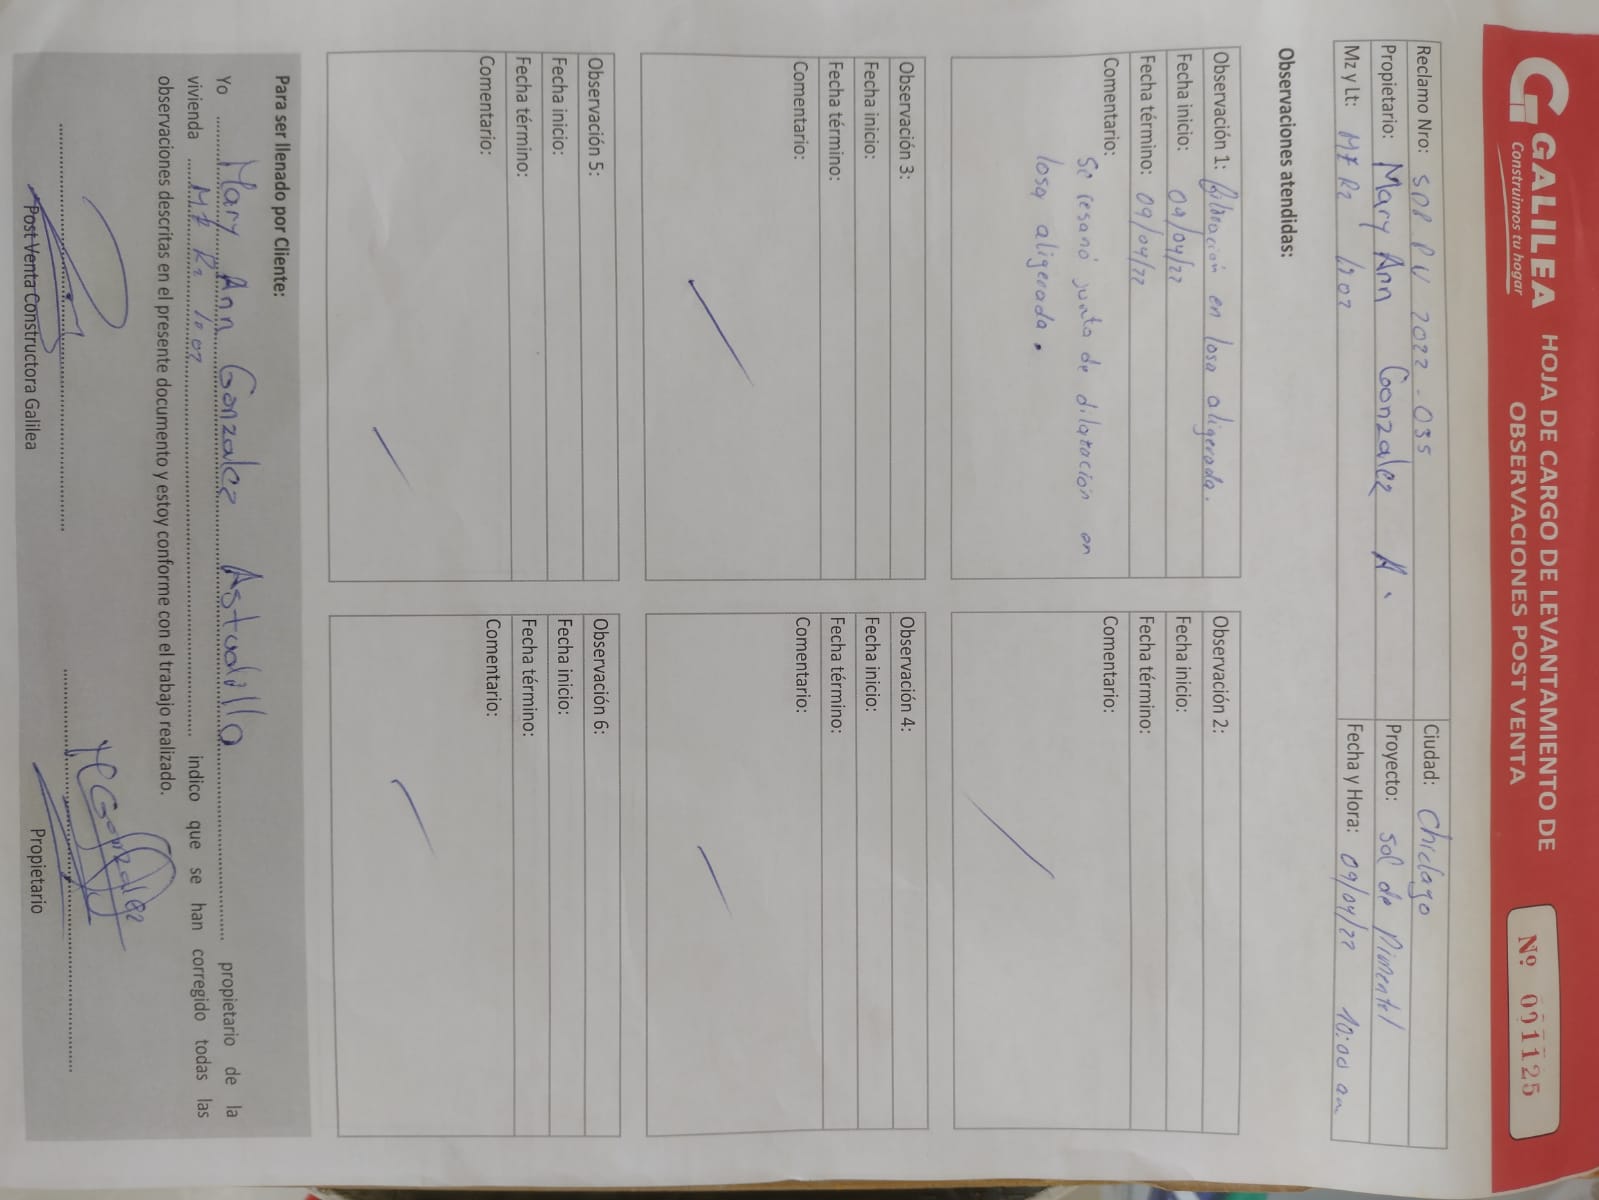 GALILEA
Construimos tu hogar
HOJA DE CARGO DE LEVANTAMIENTO DE
OBSERVACIONES POST VENTA
Nº 001125
Reclamo Nro: SDP PV 2022-035
Ciudad: Chiclayo
Propietario: Mary Ann Gonzalez A.
Proyecto: Sol de Pimentel
Mz y Lt: Mz R2 lt 07
Fecha y Hora: 09/04/22 10:00 am
Observaciones atendidas:
Observación 1: filtración en losa aligerada.
Fecha inicio: 09/04/22
Fecha término: 09/04/22
Comentario:
Se resanó junta de dilatación en
losa aligerada.
Observación 2:
Fecha inicio:
Fecha término:
Comentario:
Observación 3:
Fecha inicio:
Fecha término:
Comentario:
Observación 4:
Fecha inicio:
Fecha término:
Comentario:
Observación 5:
Fecha inicio:
Fecha término:
Comentario:
Observación 6:
Fecha inicio:
Fecha término:
Comentario:
Para ser llenado por Cliente:
Yo Mary Ann Gonzalez Astudillo propietario de la
vivienda Mz R2 lt 07 indico que se han corregido todas las
observaciones descritas en el presente documento y estoy conforme con el trabajo realizado.
Post Venta Constructora Galilea
Propietario